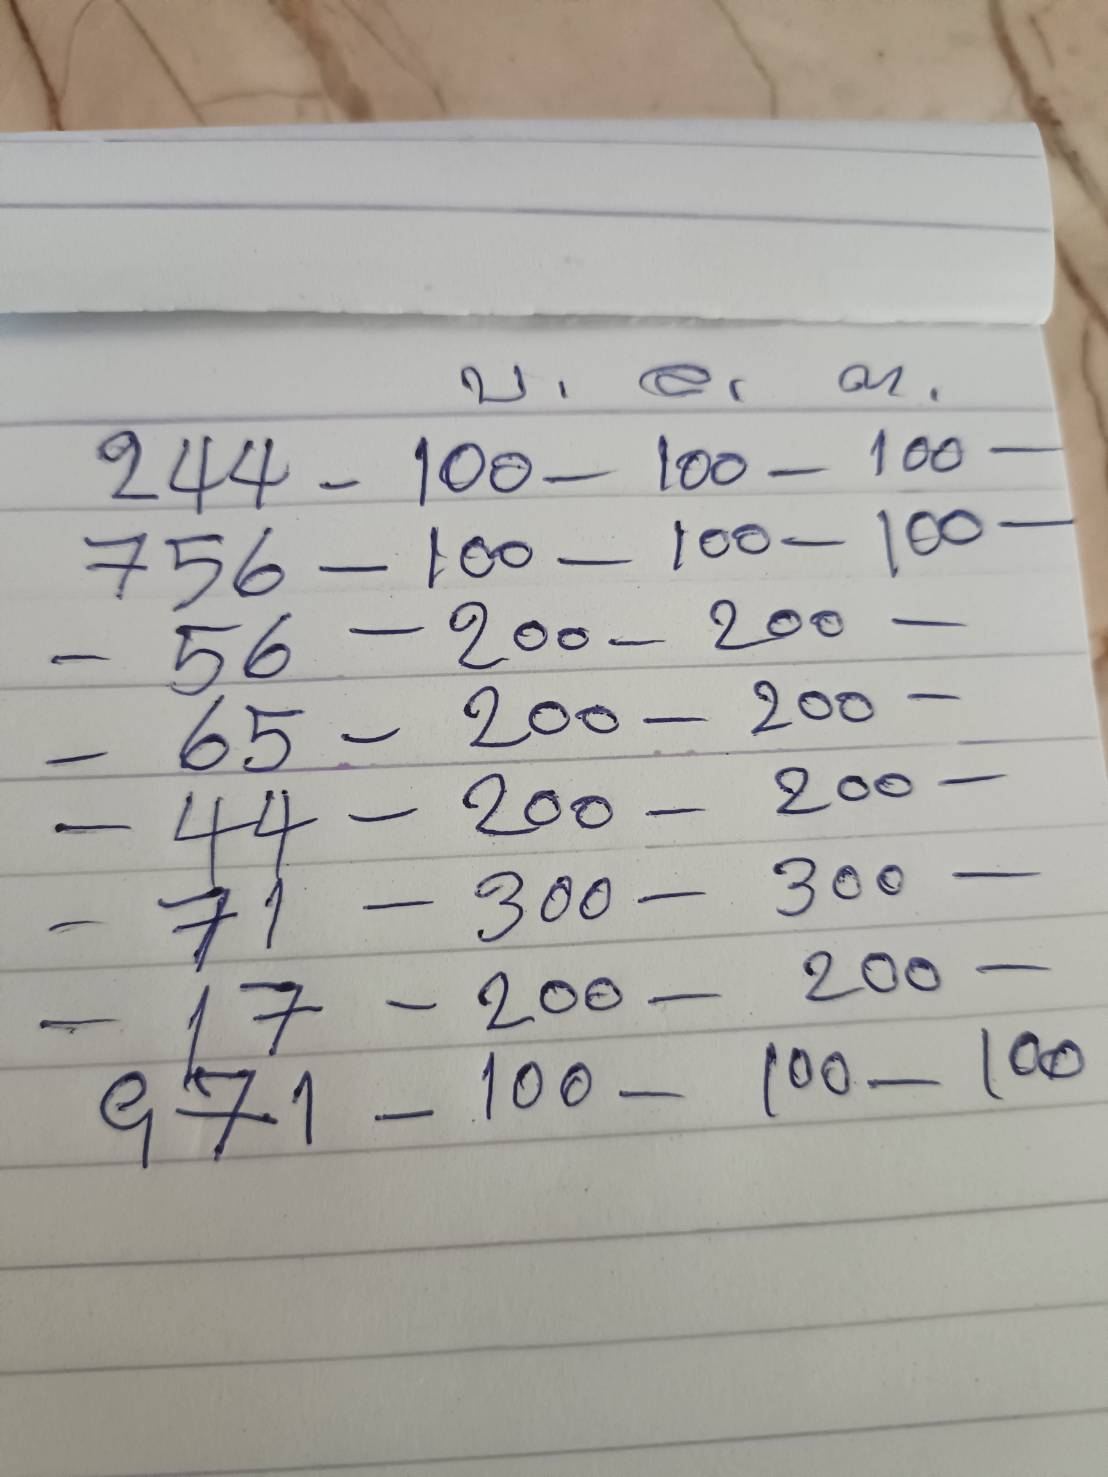 บ. ล. ต.
244 - 100 - 100 - 100 -
756 - 100 - 100 - 100 -
- 56 - 200 - 200 -
- 65 - 200 - 200 -
- 44 - 200 - 200 -
- 71 - 300 - 300 -
- 17 - 200 - 200 -
971 - 100 - 100 - 100